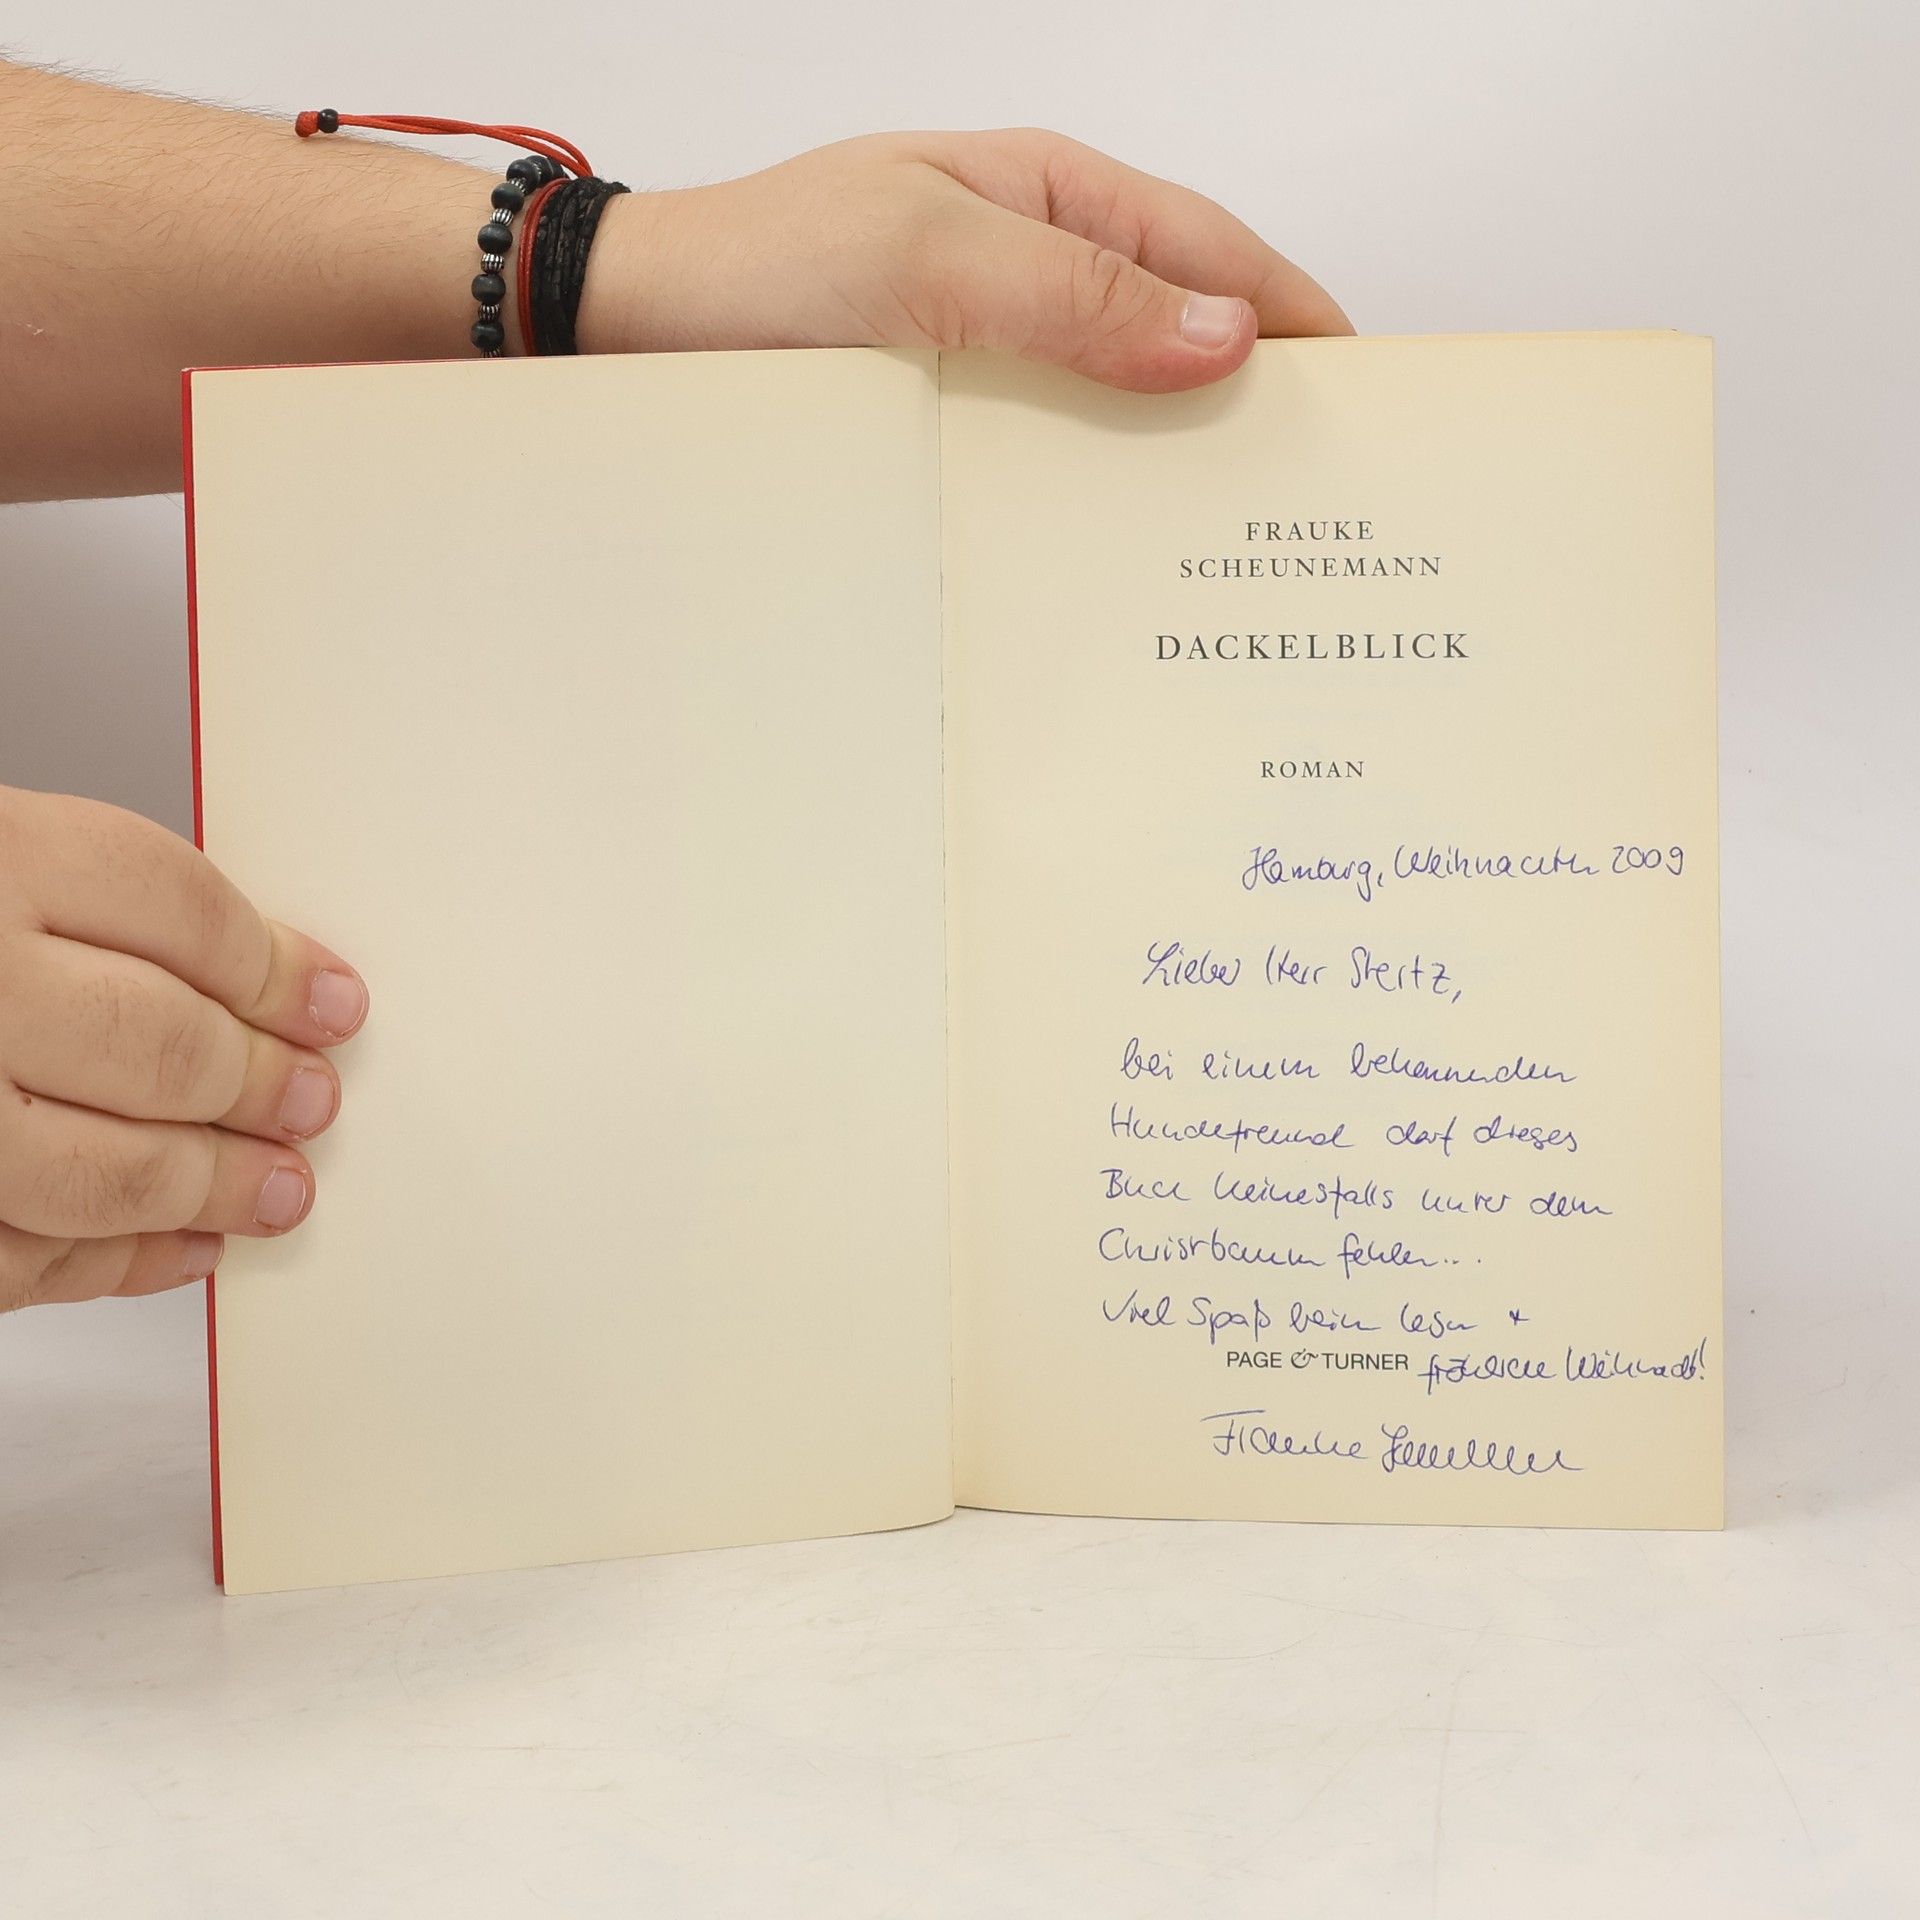 FRAUKE
SCHEUNEMANN
DACKELBLICK
ROMAN
Hamburg, Weihnachten 2009
Lieber Herr Stertz,
bei einem bekennenden
Hundefreund darf dieses
Buch keinesfalls unter dem
Christbaum fehlen...
Viel Spaß beim Lesen +
PAGE & TURNER fröhliche Weihnacht!
Frauke Scheunemann